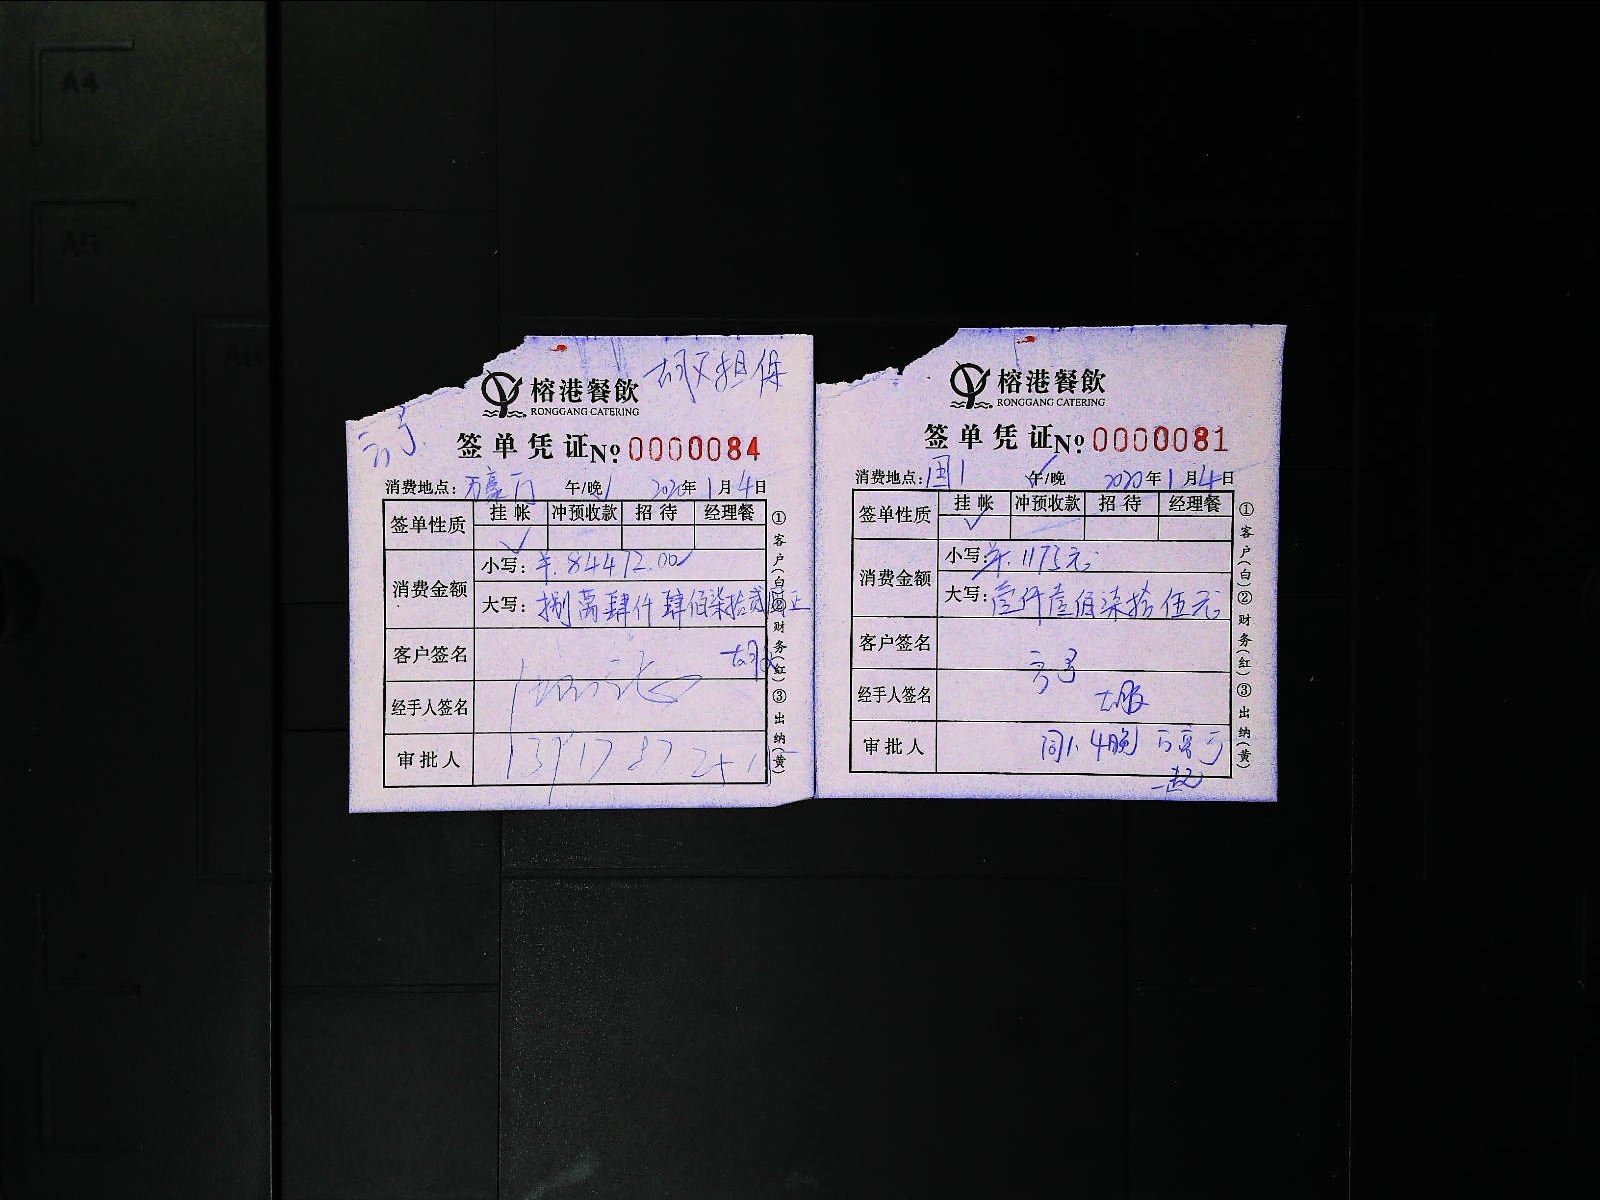 A4
A5
胡又担保
榕港餐飲
RONGGANG CATERING
签单凭证 No 0000084
消费地点: 万豪厅 午/晚 2020年1月4日
签单性质 挂帐 冲预收款 招待 经理餐
消费金额
小写: ¥:84472.00
大写: 捌萬肆仟肆佰柒拾贰圆正
客户签名
经手人签名
审批人
①客户(白)②财务(红)③出纳(黄)
榕港餐飲
RONGGANG CATERING
签单凭证 No 0000081
消费地点: 国1 午/晚 2020年1月4日
签单性质 挂帐 冲预收款 招待 经理餐
消费金额
小写: ¥:1175元
大写: 壹仟壹佰柒拾伍元
客户签名
经手人签名
审批人
一起
①客户(白)②财务(红)③出纳(黄)